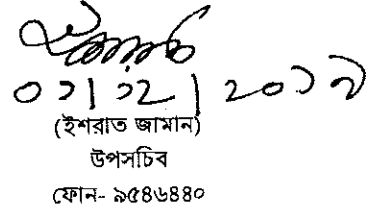 ০১/১২/২০১৯
(ইশরাত জামান)
উপসচিব
ফোন- ৯৫৪৬৪৪০